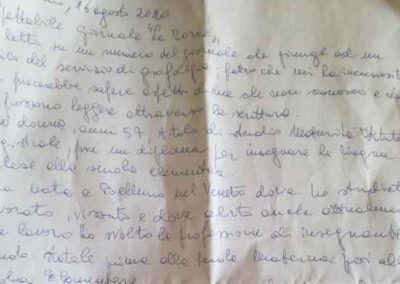 , 16 agosto 2020
spettabile giornale "La Torre"
letto su un numero del giornale che giunge ad un
del servizio di grafologia; fatto che mi ha incuriosito
piacerebbe sapere aspetti di me che non conosco e che
possono leggere attraverso la scrittura.
donna, anni 57, titolo di studio Maturità Istituto
gistrale, poi un diploma per insegnare la lingua
lese alla scuola elementare.
nata a Belluno nel Veneto dove ho studiato
vorato, vissuto e dove abito anche attualmen
e lavoro ho svolto la professione di insegnante
statale prima alla scuola Materna poi all
ola Elementare